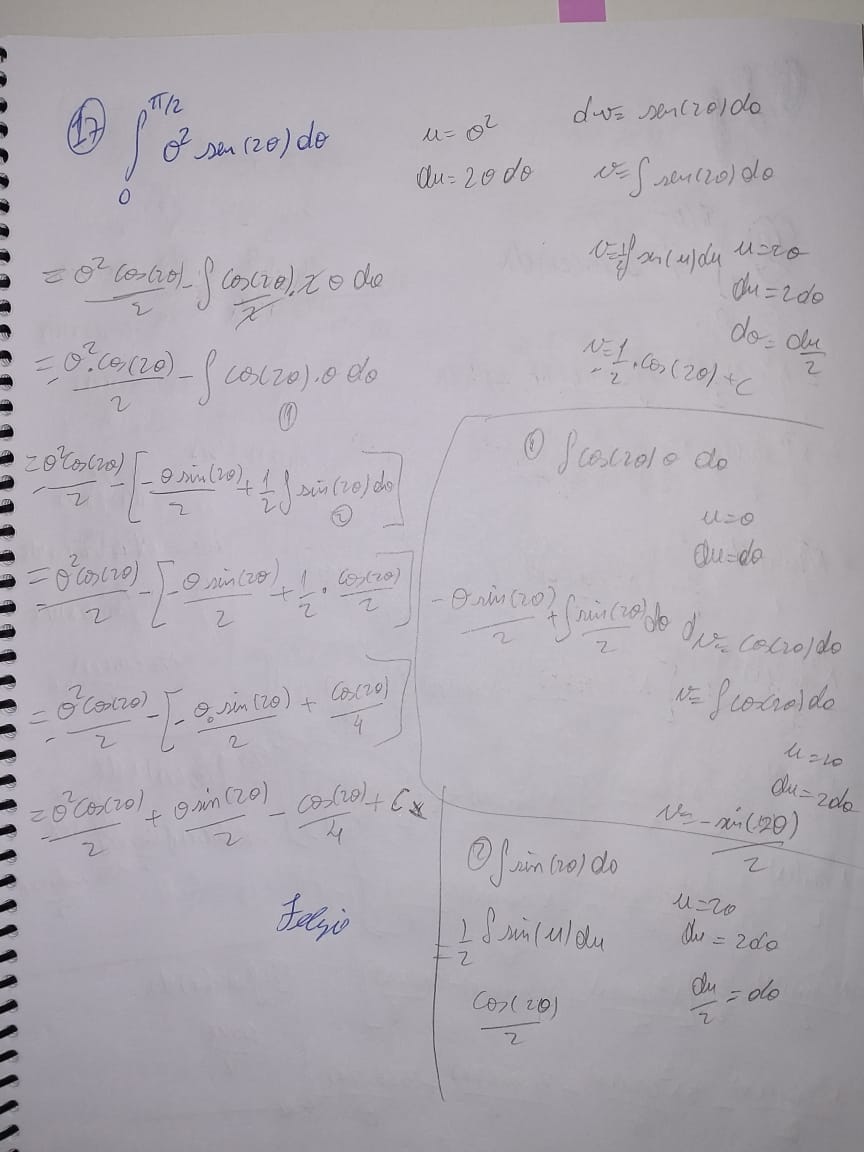 17 ∫₀^(π/2) θ² sen(2θ) dθ
u = θ² dv = sen(2θ) dθ
du = 2θ dθ v = ∫ sen(2θ) dθ
v = 1/2 ∫ sen(u) du u = 2θ
du = 2dθ
dθ = du/2
v = 1/2 . cos(2θ) + C
= θ² cos(2θ)/2 - ∫ cos(2θ)/2 . 2 θ dθ
= θ² . cos(2θ)/2 - ∫ cos(2θ) . θ dθ
①
= θ² cos(2θ)/2 - [ -θ sin(2θ)/2 + 1/2 ∫ sin(2θ) dθ ]
②
= θ² cos(2θ)/2 - [ -θ sin(2θ)/2 + 1/2 . cos(2θ)/2 ]
= θ² cos(2θ)/2 - [ -θ . sin(2θ)/2 + cos(2θ)/4 ]
= θ² cos(2θ)/2 + θ sin(2θ)/2 - cos(2θ)/4 + C
① ∫ cos(2θ) θ dθ
u = θ
du = dθ
-θ sin(2θ)/2 + ∫ sin(2θ)/2 dθ dv = cos(2θ) dθ
v = ∫ cos(2θ) dθ
u = 2θ
du = 2dθ
v = -sin(2θ)/2
② ∫ sin(2θ) dθ
u = 2θ
= 1/2 ∫ sin(u) du du = 2dθ
cos(2θ)/2 du/2 = dθ